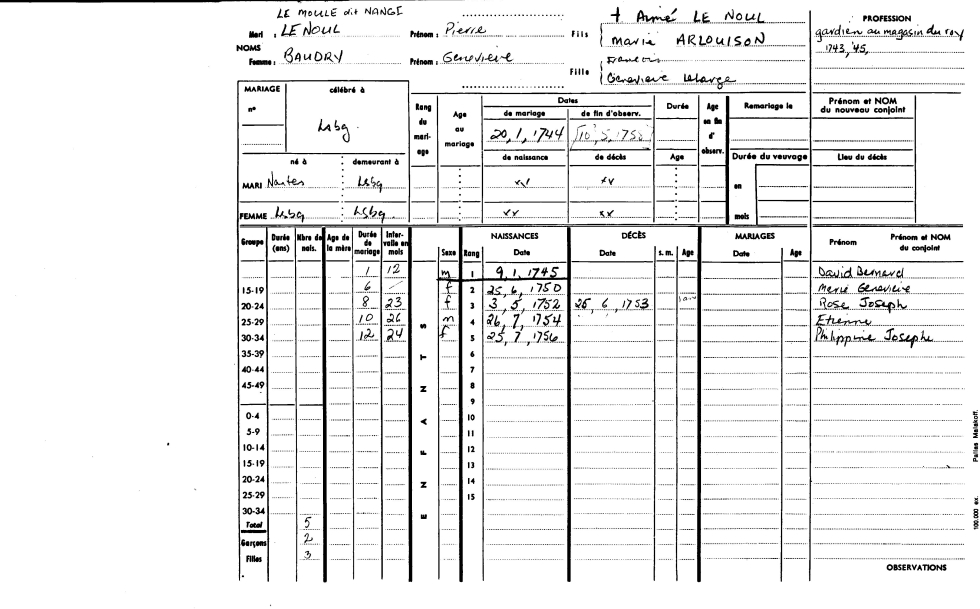 LE MOULE dit NANGI
Mari : LE NOUL Prénom : Pierre Fils † Aimé LE NOUL
Marie ARLOUISON
NOMS
Femme : BAUDRY Prénom : Genevieve Fille François
Genevieve Lelarge
PROFESSION
gardien au magasin du roy
1743, '45,
MARIAGE célébré à
n°
Lsbg.
né à demeurant à
MARI Nantes Lsbg
FEMME Lsbg Lsbg.
Rang du mariage
Age au mariage
Dates
de mariage de fin d'observ.
20, 1, 1744 10, 5, 1758
de naissance de décès
xx xx
xx xx
Durée
Age
Age en fin d'observ.
Remariage le
Durée du veuvage
en
mois
Prénom et NOM du nouveau conjoint
Lieu du décès
Groupe Durée (ans) Nbre de nais. Age de la mère Durée de mariage Inter-valle en mois ENFANTS Sexe Rang NAISSANCES Date DÉCÈS Date s. m. Age MARIAGES Date Age Prénom Prénom et NOM du conjoint
1 12 m 1 9, 1, 1745 David Bernard
15-19 6 / f 2 25, 6, 1750 Marie Genevieve
20-24 8 23 f 3 3, 5, 1752 25, 6, 1753 1 an Rose Joseph
25-29 10 26 m 4 26, 7, 1754 Etienne
30-34 12 24 f 5 25, 7, 1756 Philippine Josephe
35-39 6
40-44 7
45-49 8
9
0-4 10
5-9 11
10-14 12
15-19 13
20-24 14
25-29 15
30-34
Total 5
Garçons 2
Filles 3
OBSERVATIONS
100.000 ex. Pallas Malakoff.